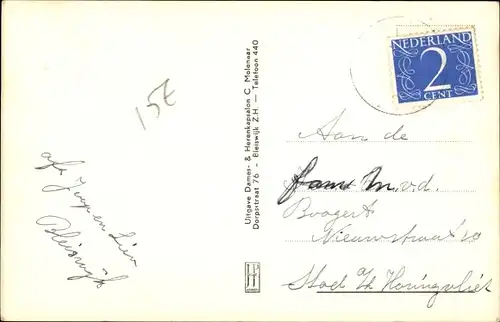 15€
afz Jaap en Lien
Bleiswijk
Uitgave Dames- & Herenkapsalon C Molenaar
Dorpsstraat 76 - Bleiswijk Z.H. — Telefoon 440
NEDERLAND
2
CENT
Aan de
Fam v.d.
Boogert
Nieuwstraat 10
Stad a/h Haringvliet